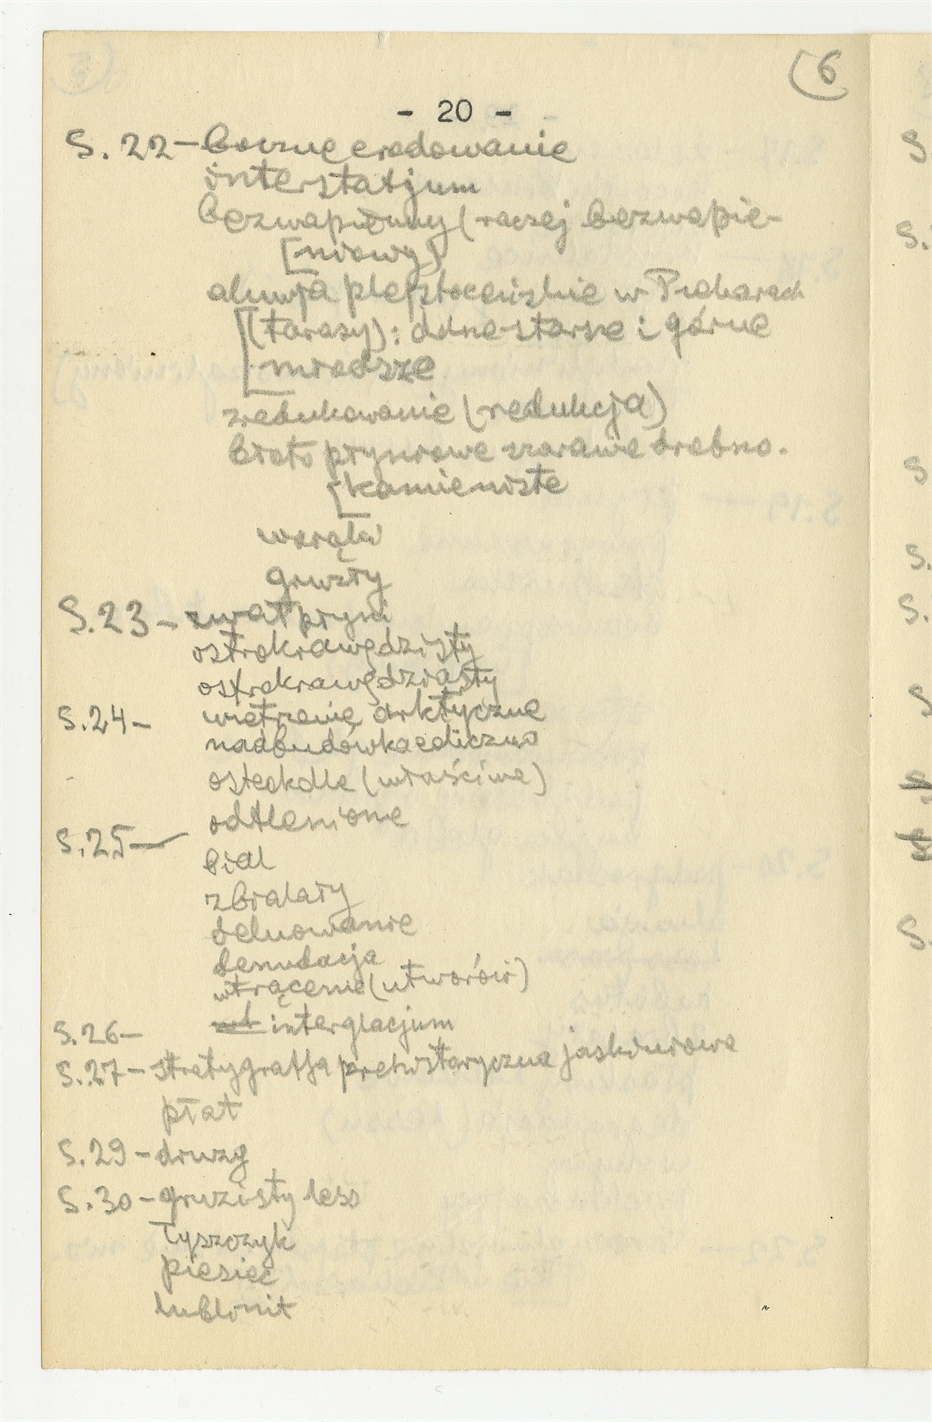 (6
- 20 -
S. 22 - boczne erodowanie
interstatjum
bezwapienny (raczej bezwapie-
[niowy)
aluwja plejstoceńskie w Pieharach
[(tarasy): dolne starsze i górne
młodsze
zredukowanie (redukcja)
błoto pływowe szarawe drobno-
[kamieniste
gruzły
S.23 -
ostrokrawędzisty
ostrokrawędziasty
S.24 - wietrzenie arktyczne
nadbudówka eoliczna
osteokolle (właściwe)
odtlenione
S.25 -
bial
zbielały
deluowanie
denudacja
wtrącenie (utworów)
S.26 - interglacjum
S.27 - stratygrafja prehistoryczna jaskiniowa
płat
S.29 - druzg
S.30 - gruzisty less
Łyszczyk
piesiec
lublinit